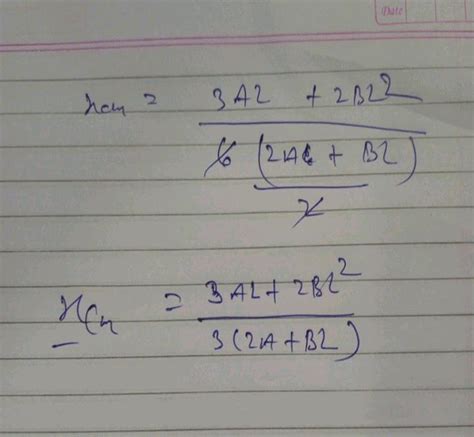 Date
xcm = 3AL + 2BL² / 6 (2A + BL) / 2
xcm = 3AL + 2BL² / 3(2A + BL)